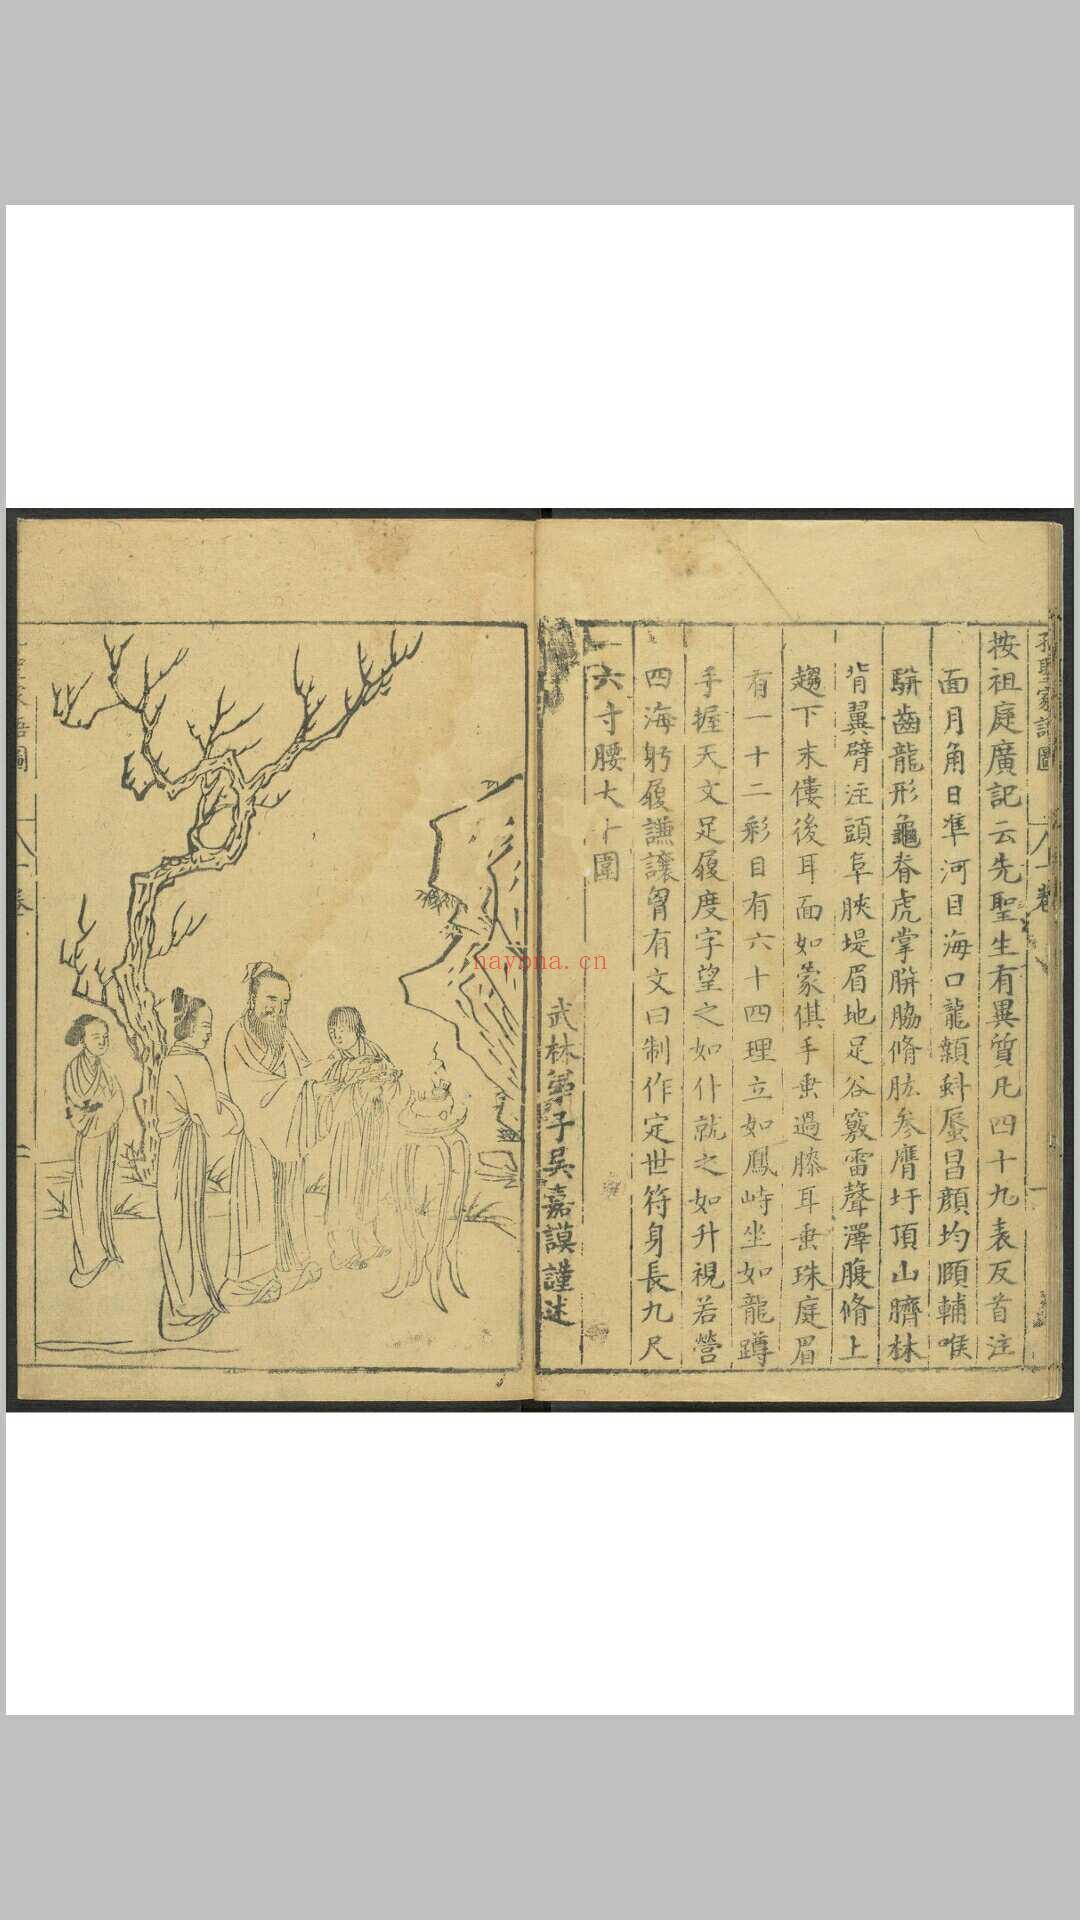 孔聖家語圖 一卷 一
按祖庭廣記云先聖生有異質凡四十九表反首注
面月角日準河目海口龍顙蚪唇昌顏均頤輔喉
駢齒龍形龜脊虎掌胼脇脩肱參膺圩頂山臍林
背翼臂注頭阜脥堤眉地足谷竅雷聲澤腹脩上
趨下末僂後耳面如蒙倛手垂過膝耳垂珠庭眉
有一十二彩目有六十四理立如鳳峙坐如龍蹲
手握天文足履度字望之如仆就之如升視若營
四海躬履謙讓胷有文曰制作定世符身長九尺
六寸腰大十圍
武林弟子吳嘉謨謹述
家語圖 一卷 二
naybna.cn